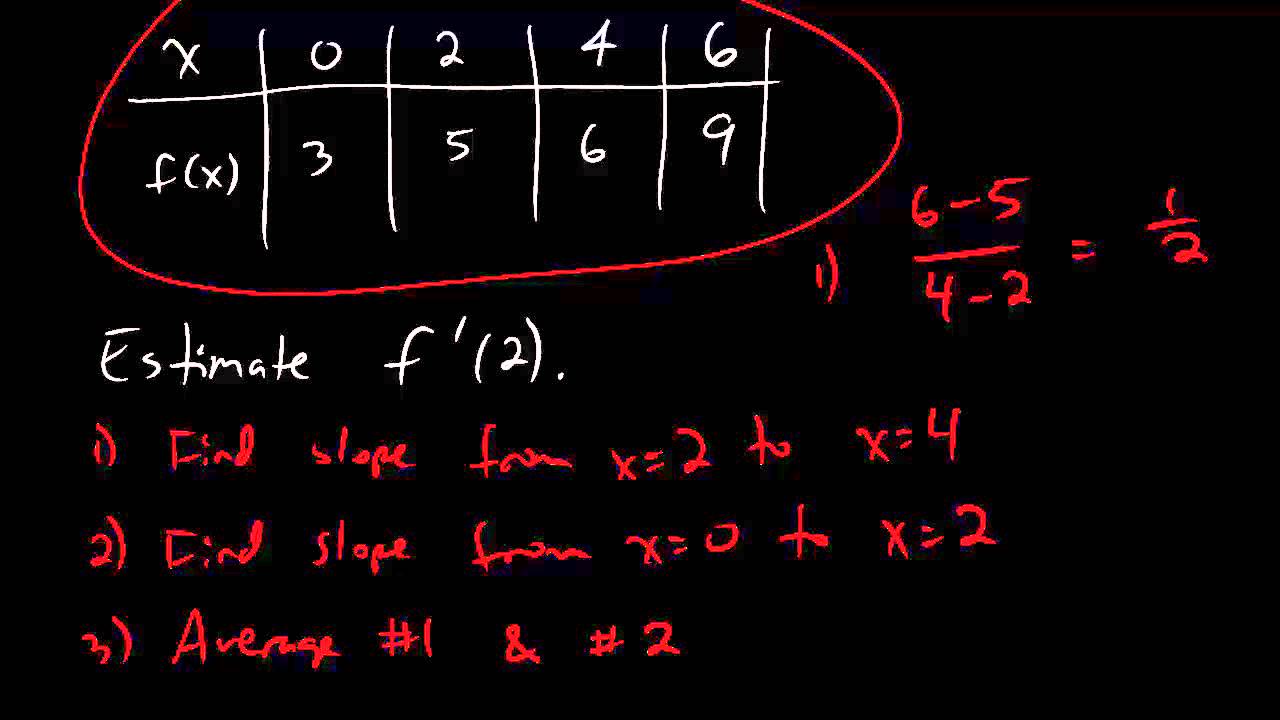 x | 0 | 2 | 4 | 6 |
f(x) | 3 | 5 | 6 | 9 |
1) (6-5)/(4-2) = 1/2
Estimate f'(2).
1) Find slope from x=2 to x=4
2) Find slope from x=0 to x=2
3) Average #1 & #2